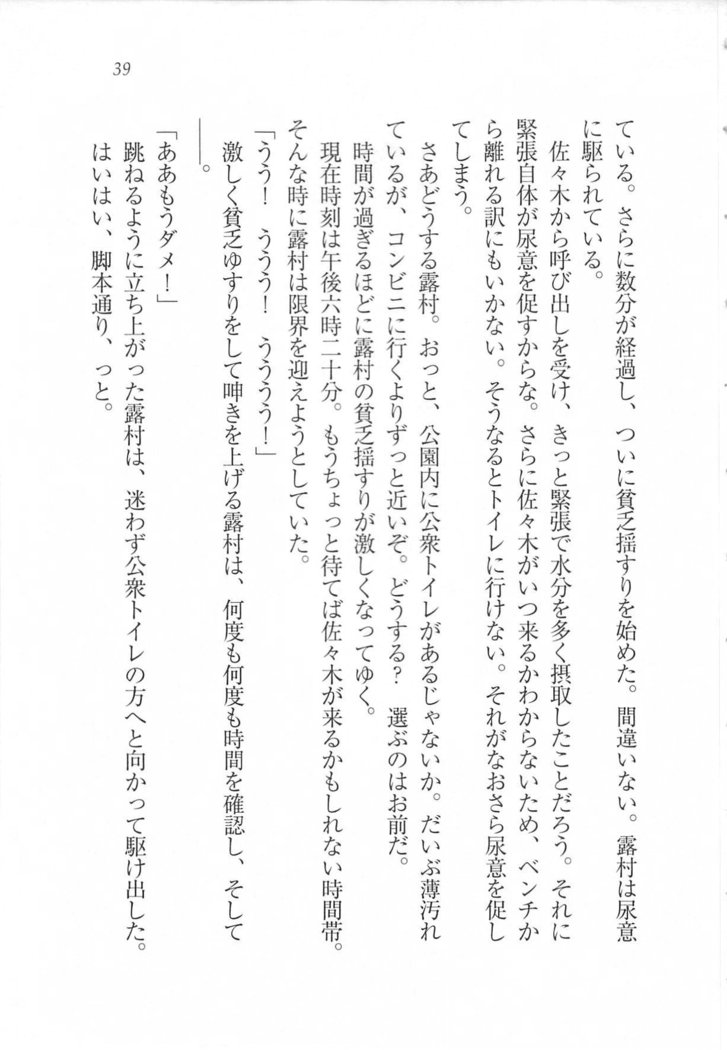 39
ている。さらに数分が経過し、ついに貧乏揺すりを始めた。間違いない。露村は尿意
に駆られている。
佐々木から呼び出しを受け、きっと緊張で水分を多く摂取したことだろう。それに
緊張自体が尿意を促すからな。さらに佐々木がいつ来るかわからないため、ベンチか
ら離れる訳にもいかない。そうなるとトイレに行けない。それがなおさら尿意を促し
てしまう。
さあどうする露村。おっと、公園内に公衆トイレがあるじゃないか。だいぶ薄汚れ
ているが、コンビニに行くよりずっと近いぞ。どうする？　選ぶのはお前だ。
時間が過ぎるほどに露村の貧乏揺すりが激しくなってゆく。
現在時刻は午後六時二十分。もうちょっと待てば佐々木が来るかもしれない時間帯。
そんな時に露村は限界を迎えようとしていた。
「うう！　ううう！　うううう！」
激しく貧乏ゆすりをして呻きを上げる露村は、何度も何度も時間を確認し、そして
――。
「ああもうダメ！」
跳ねるように立ち上がった露村は、迷わず公衆トイレの方へと向かって駆け出した。
はいはい、脚本通り、っと。